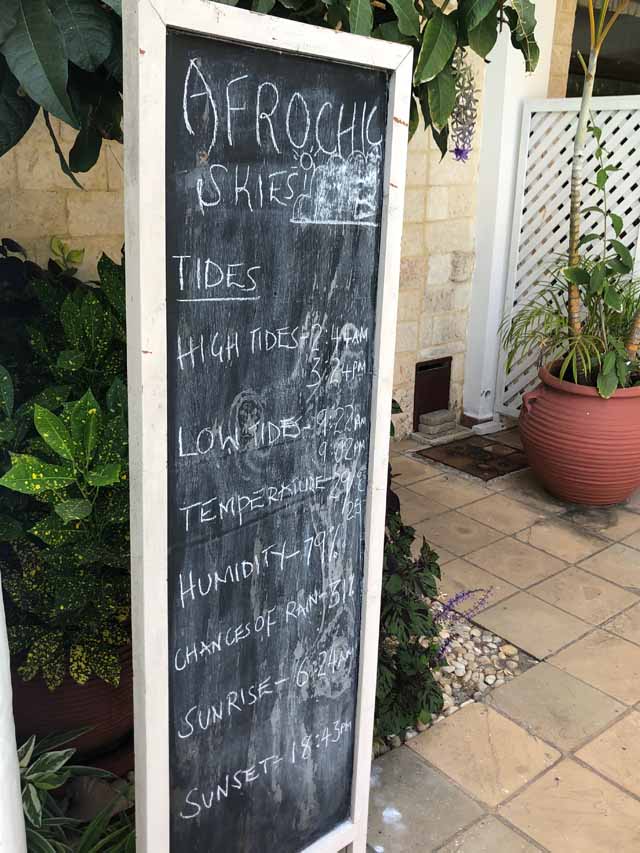 AFROCHIC
SKIES
TIDES
HIGH TIDES- 2:44AM
3:24PM
LOW TIDES- 9:22AM
9:02PM
TEMPERATURE-29
25
HUMIDITY-79%
CHANCES OF RAIN-31%
SUNRISE- 6:24AM
SUNSET- 18:43PM